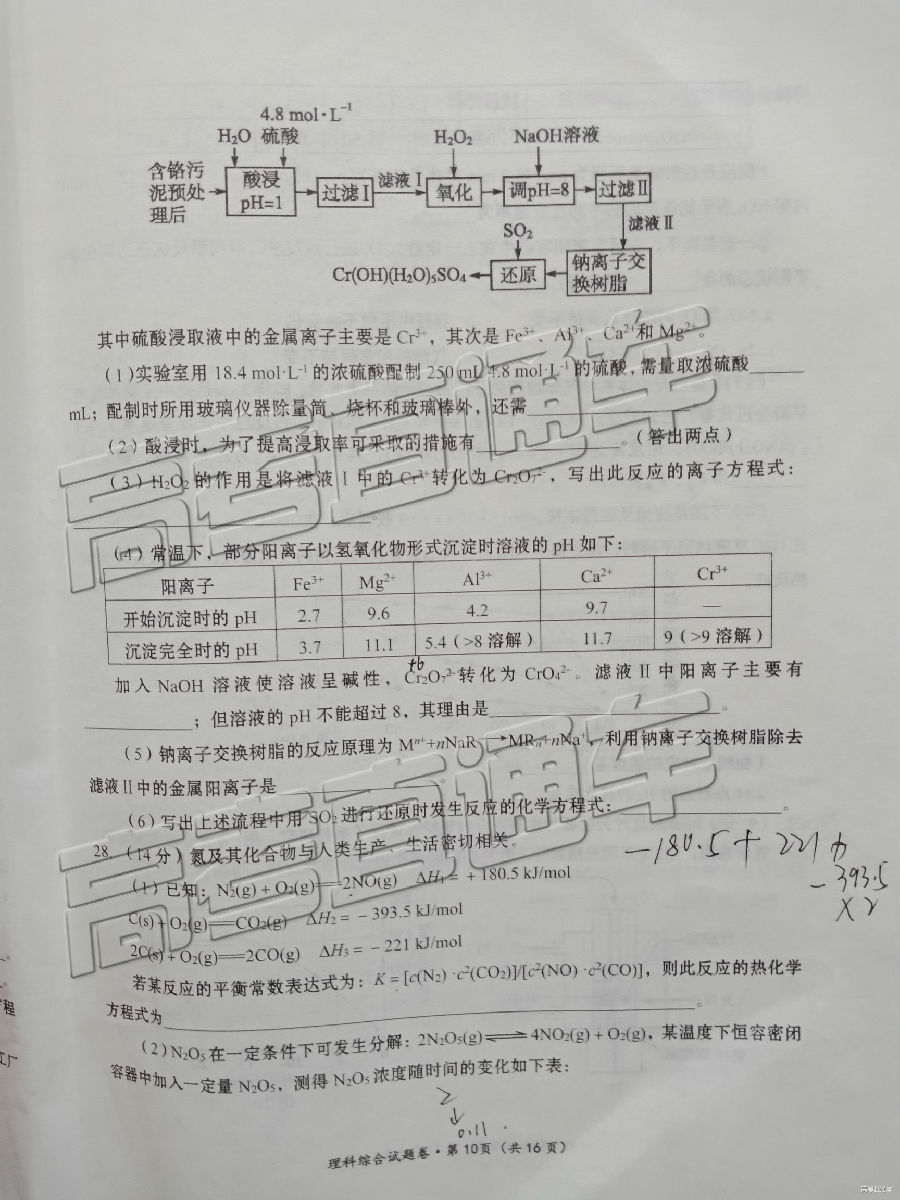 4.8 mol·L⁻¹
H₂O 硫酸 H₂O₂ NaOH溶液
含铬污泥预处理后 酸浸pH=1 过滤Ⅰ 滤液Ⅰ 氧化 调pH=8 过滤Ⅱ
SO₂ 滤液Ⅱ
Cr(OH)(H₂O)₅SO₄ 还原 钠离子交换树脂
其中硫酸浸取液中的金属离子主要是 Cr³⁺，其次是 Fe³⁺、Al³⁺、Ca²⁺和 Mg²⁺。
(1)实验室用 18.4 mol·L⁻¹ 的浓硫酸配制 250 mL 4.8 mol·L⁻¹ 的硫酸，需量取浓硫酸______
mL；配制时所用玻璃仪器除量筒、烧杯和玻璃棒外，还需______。
(2)酸浸时，为了提高浸取率可采取的措施有______。(答出两点)
(3) H₂O₂ 的作用是将滤液Ⅰ中的 Cr³⁺ 转化为 Cr₂O₇²⁻，写出此反应的离子方程式：
______。
(4)常温下，部分阳离子以氢氧化物形式沉淀时溶液的 pH 如下：
阳离子 Fe³⁺ Mg²⁺ Al³⁺ Ca²⁺ Cr³⁺
开始沉淀时的 pH 2.7 9.6 4.2 9.7 —
沉淀完全时的 pH 3.7 11.1 5.4（>8 溶解） 11.7 9（>9 溶解）
+6
加入 NaOH 溶液使溶液呈碱性，Cr₂O₇²⁻ 转化为 CrO₄²⁻。滤液Ⅱ中阳离子主要有
______；但溶液的 pH 不能超过 8，其理由是______。
(5)钠离子交换树脂的反应原理为 Mⁿ⁺+nNaR→MRₙ+nNa⁺，利用钠离子交换树脂除去
滤液Ⅱ中的金属阳离子是______。
(6)写出上述流程中用 SO₂ 进行还原时发生反应的化学方程式：______。
28.（14分）氮及其化合物与人类生产、生活密切相关。
(1)已知：N₂(g) + O₂(g)══2NO(g) ΔH₁ = + 180.5 kJ/mol
-180.5 + 221 
- 393.5
×2
C(s) + O₂(g)══CO₂(g) ΔH₂ = - 393.5 kJ/mol
2C(s) + O₂(g)══2CO(g) ΔH₃ = - 221 kJ/mol
若某反应的平衡常数表达式为：K = [c(N₂)·c²(CO₂)]/[c²(NO)·c²(CO)]，则此反应的热化学
方程式为______。
(2) N₂O₅ 在一定条件下可发生分解：2N₂O₅(g)⇌4NO₂(g) + O₂(g)，某温度下恒容密闭
容器中加入一定量 N₂O₅，测得 N₂O₅ 浓度随时间的变化如下表：
2
↓
0.11
理科综合试题卷·第10页（共16页）
高考直通车
高考直通车